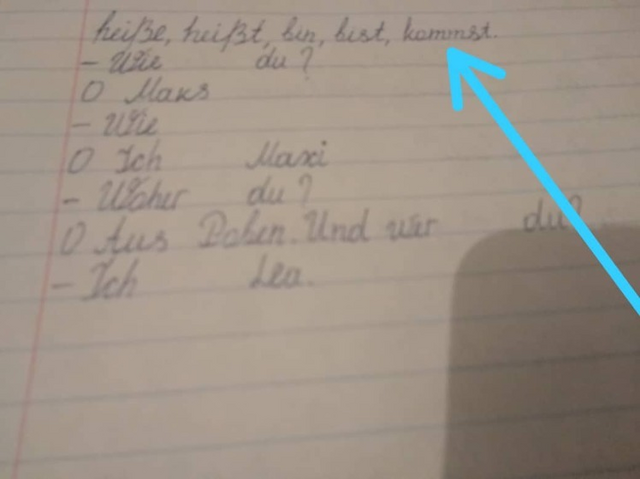 heiße, heißt, bin, bist, kommst.
- Wie du?
O Maks
- Wie
O Ich Maxi
- Woher du?
O Aus Polen. Und wer du?
- Ich Lea.